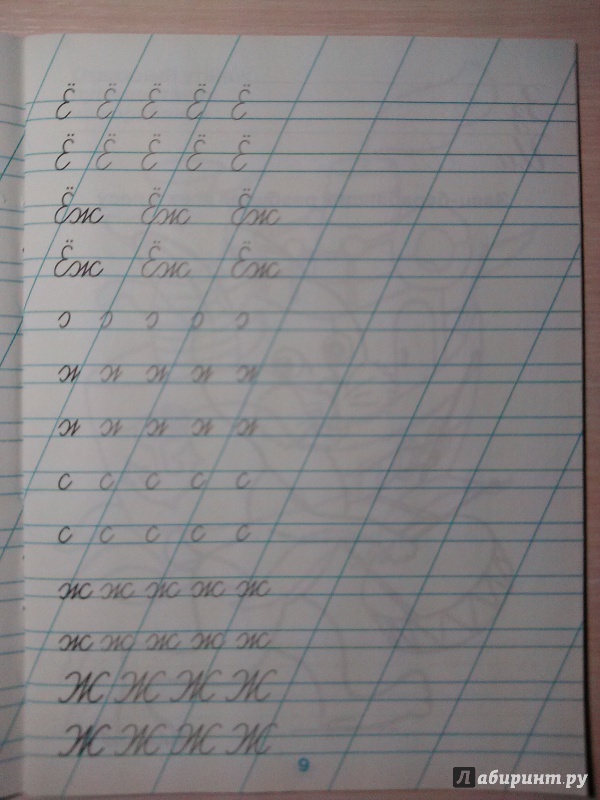 Ё Ё Ё Ё Ё
Ё Ё Ё Ё Ё
Ёж Ёж Ёж
Ёж Ёж Ёж
ɔ ɔ ɔ ɔ ɔ
с с с с с
с с с с с
ж ж ж ж ж
ж ж ж ж ж
Ж Ж Ж Ж
Ж Ж Ж Ж
9
Лабиринт.ру